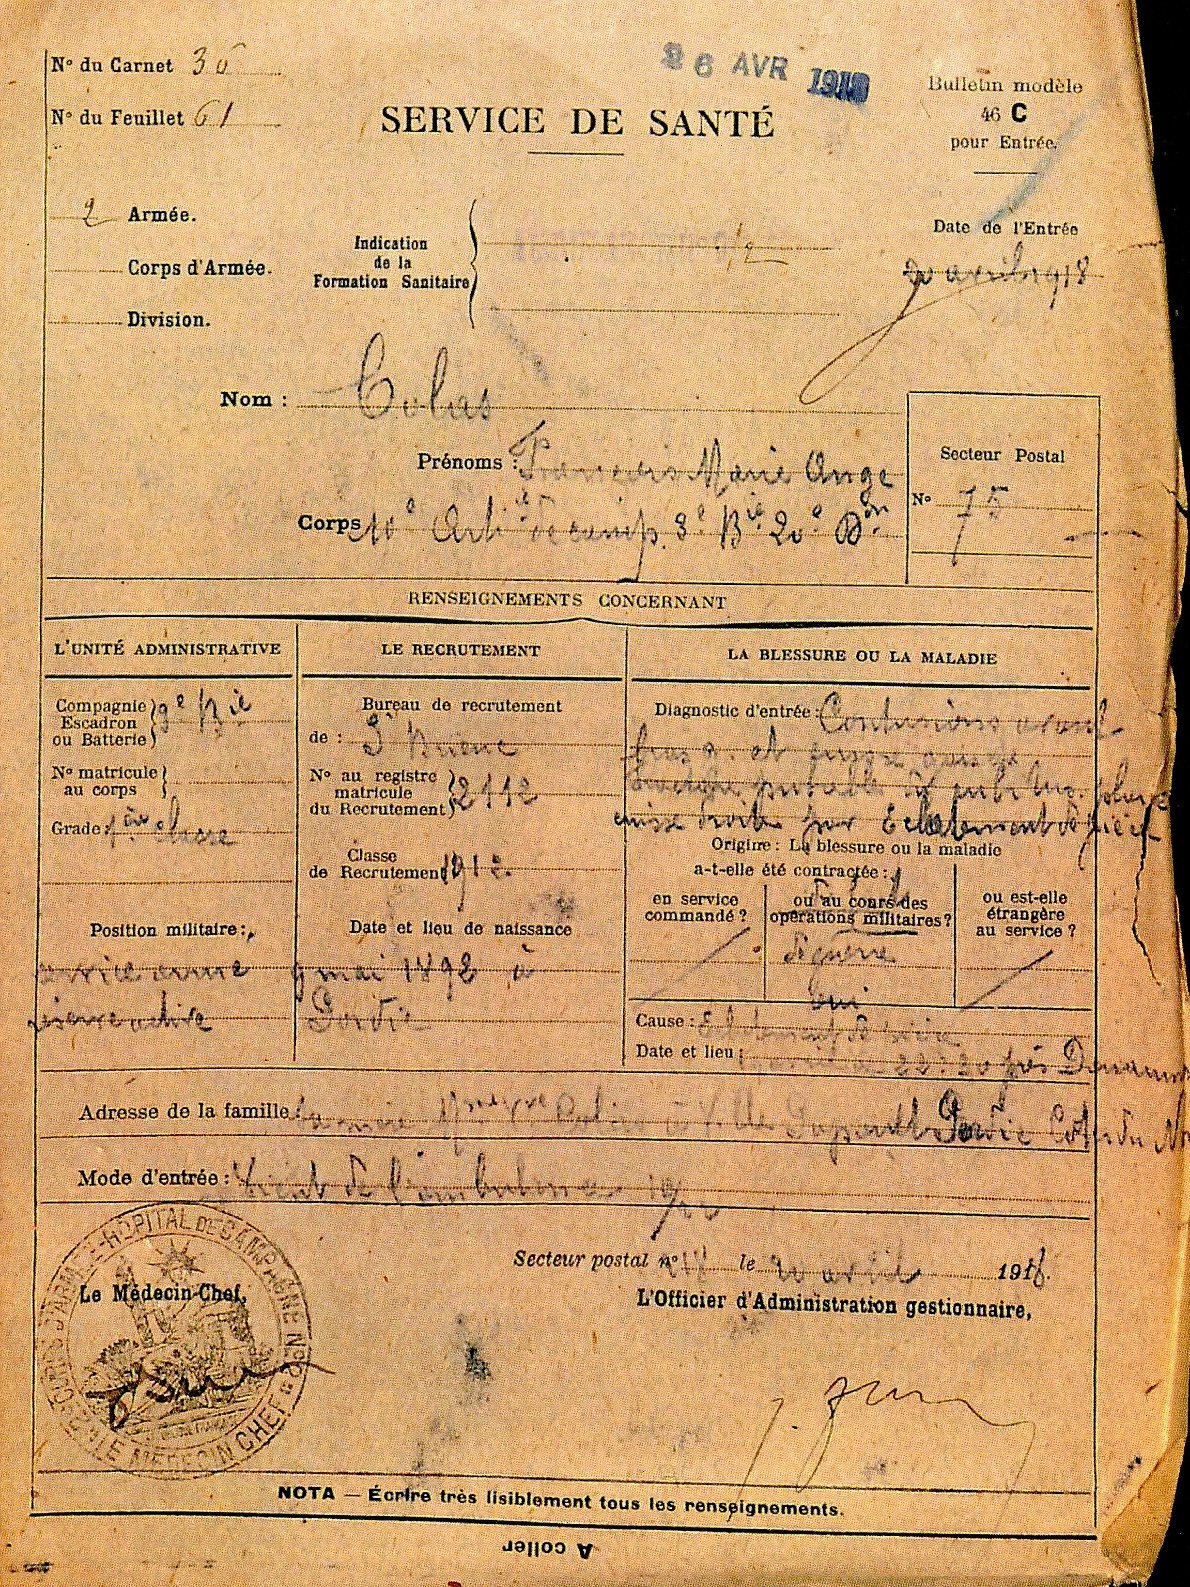 N° du Carnet
N° du Feuillet 61
26 AVR 1918
Bulletin modèle
46 C
pour Entrée.
SERVICE DE SANTÉ
2 Armée.
Corps d'Armée.
Division.
Indication
de la
Formation Sanitaire
Date de l'Entrée
20 avril 1918
Nom : Colas
Prénoms : François Marie Ange
Corps 10e Artie de camp. 8e Bie 20e Don
Secteur Postal
N° 75
RENSEIGNEMENTS CONCERNANT
L'UNITÉ ADMINISTRATIVE
Compagnie
Escadron
ou Batterie
Bie
N° matricule
au corps
Grade: classe
Position militaire:
service armé
réserve active
LE RECRUTEMENT
Bureau de recrutement
de : St Brieuc
N° au registre
matricule
du Recrutement
2112
Classe
de Recrutement 1912
Date et lieu de naissance
9 mai 1892 à
Pordic
LA BLESSURE OU LA MALADIE
Diagnostic d'entrée: Contusions avant
bras g. et
probable
cuisse droite par Eclatement de pièce
Origine: La blessure ou la maladie
a-t-elle été contractée:
en service
commandé?
ou au cours des
opérations militaires?
de guerre
oui
ou est-elle
étrangère
au service?
Cause: Eclatement de pièce
Date et lieu: près
Adresse de la famille Colas à Ville Pordic Cotes du N
Mode d'entrée: Vient de l'ambulance
Secteur postal n° le 20 avril 1918.
Le Médecin-Chef,
L'Officier d'Administration gestionnaire,
HOPITAL DE CAMPAGNE N°
LE MÉDECIN CHEF
NOTA — Écrire très lisiblement tous les renseignements.
A coller